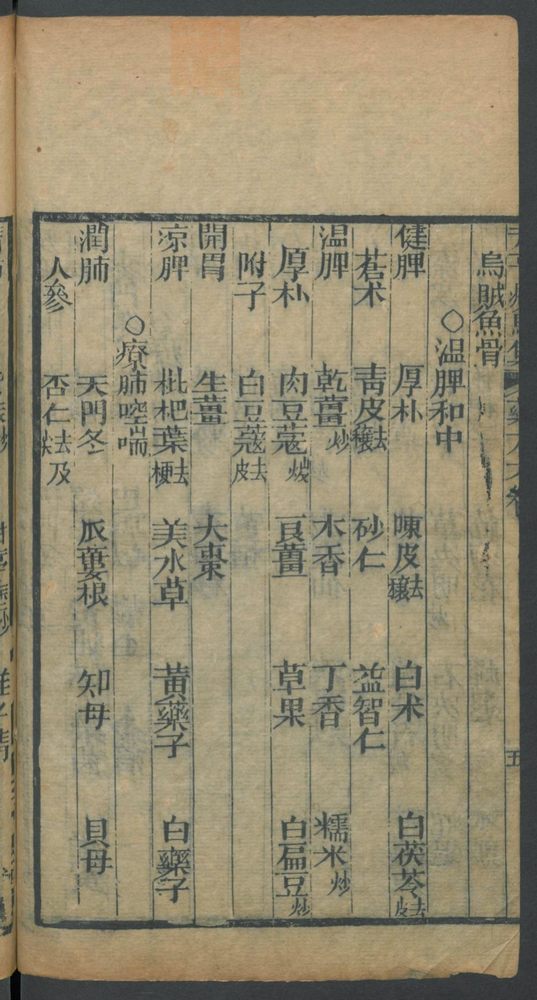 烏賊魚骨
○温脾和中
健脾 厚朴 陳皮去穰 白术 白茯苓去皮
蒼术 青皮去穰 砂仁 益智仁
温脾 乾薑炒 木香 丁香 糯米炒
厚朴 肉豆蔻煨 良薑 草果 白扁豆炒
附子 白豆蔻去皮
開胃 生薑 大棗
凉脾 枇杷葉去梗 美水草 黄藥子 白藥子
○療肺啌喘
潤肺 天門冬 瓜蔞根 知母 貝母
人參 杏仁去及尖
五